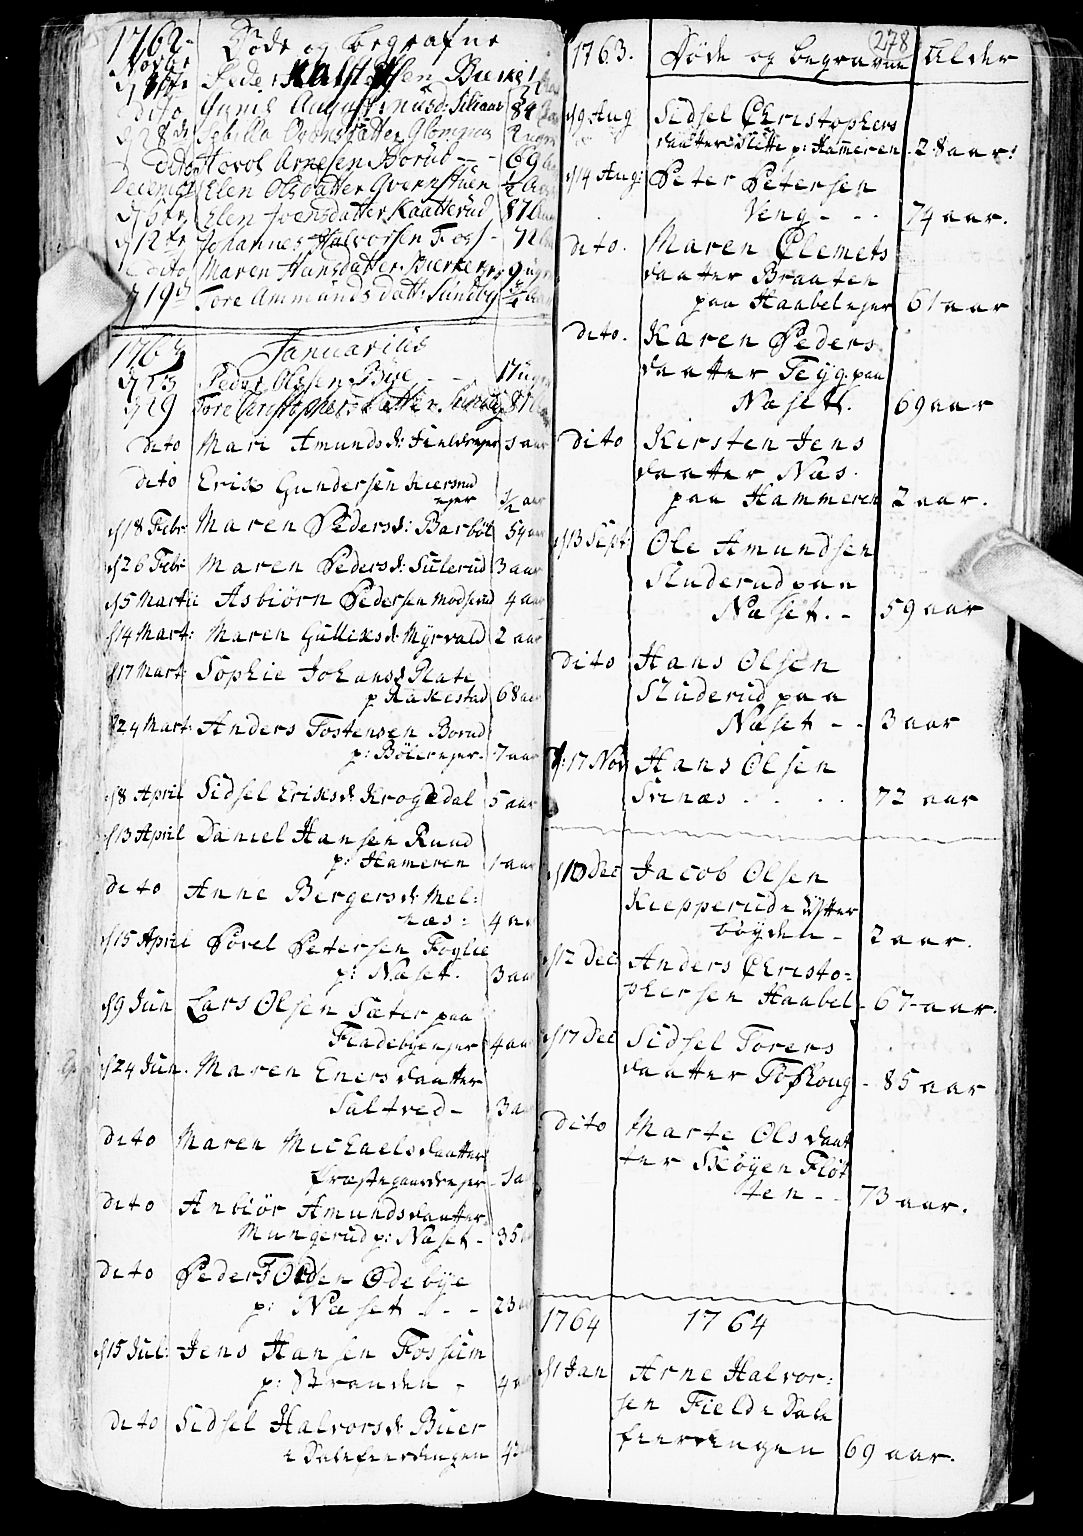 1762
Døde og begrafne
dito
dito
Decembr Elen Olsdatter
d 6te Elen Joensdatter Kaatterud 87
d 12te Johannes Halvorsen Foss - 72
dito Maren Hansdatter
d 19de Tore Ammunds datt: Sundby 3/4
1763 Januarius
d 13 Peder Olsen Bye - - 17 ug
d 29 Tore Christophersdatter 87
dito Mari Amunds d: 3 aar
dito Erik Gundersen
ejer 1/2 aar
d 18 Febr: Maren Peders d: Barbøl 54 aar
d 26 Febr Maren Peders d: Sulerud 3 aar
d 5 Martii Asbiørn Pedersen Modserud 4 aar
d 14 Mart: Maren Gulliks d: Myrvald 2 aar
d 17 Mart: Sophie Johans d Plate
p Rakestad 68 aar
d 24 Mart: Anders Tostensen Borud
p: Bøler ejer - 7 aar
d 8 April Sidsel Eriks d: Krogsdal 5 aar
d 13 April Daniel Hansen Ruud
p: Hameren 1 aar
dito Anne Bergers d: Mel:
næs: 4 aar
d 15 April Povel Petersen Foglie
p: Næset. 3 aar
d 9 Jun Lars Olsen Sæter paa
Fladebye ejer 4 aar
d 24 Jun. Maren Eners daatter
Sultved - 3 a
dito Maren Michaels daatter
Præstegaards ejer
dito Anbiør Amunds daatter
Mungerud p: Næset - 35
dito Peder Olsen Ødebye
p: Næset - - - 23
d 15 Jul: Jens Hansen Fossum
p: Branden - 4 a
dito Sidsel Halvors d: Buer
i Dalefierdingen
278
1763. Døde og begravne Alder
d 9 Aug Sidsel Christophers
daatter Slette p: Hammeren - 28 aar.
d 14 Aug: Peter Petersen
Veng - - - 74 aar.
dito. Maren Clemets
daatter Braaten
paa Haabel ejer 61 aar
dito. Karen Peders
daatter Teyg paa
Næset. 69 aar
dito Kirsten Jens
daatter Næs
paa Hammeren 2 aar.
d 13 Sept: Ole Amundsen
Sluderud paa
Næset. - 59 aar
dito Hans Olsen
Sluderud paa
Næset - - 3 aar
d: 17 Nov Hans Olsen
Svinæs . . . . 72 aar
d 10 Dec Jacob Olsen
Kiepperud i Østter
bøyden - 2 aar.
d 12 Dec Anders Christo=
phersen Haabel - 67 aar.
d 17 Dec Sidsel Torers
daatter Toshoug - 85 aar
dito Marte Ols daat
ter Skøyen Fløt
ten - - 73 aar.
1764 1764
d 1 Jan Arne Halvor:
sen Field i Dale
fierdingen 69 aar.